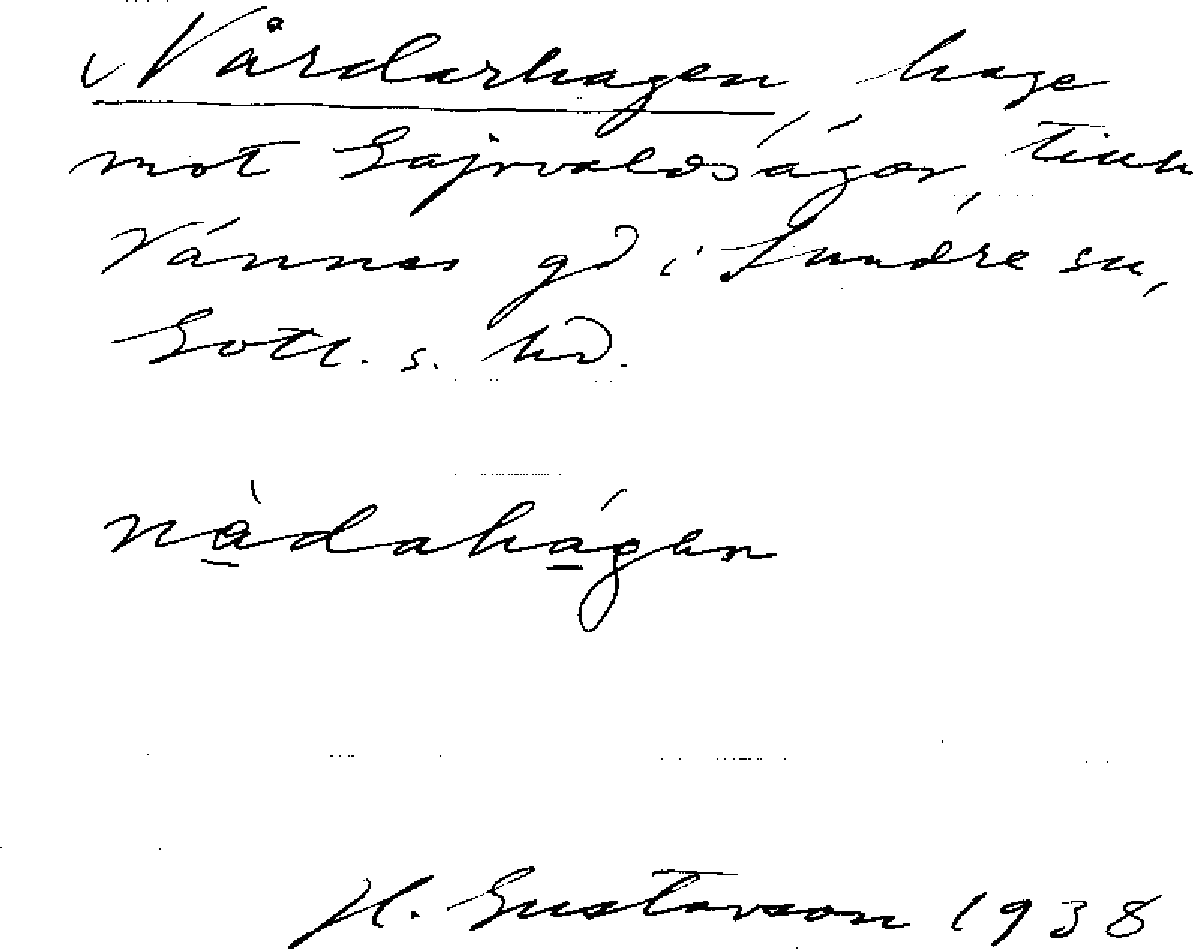 Nårdarhagen, hage
mot Gajrvaldsågar, tillh
Vännes gd i Sundre sn,
Gotl. s. hd.
nådahagen
H. Gustavson 1938